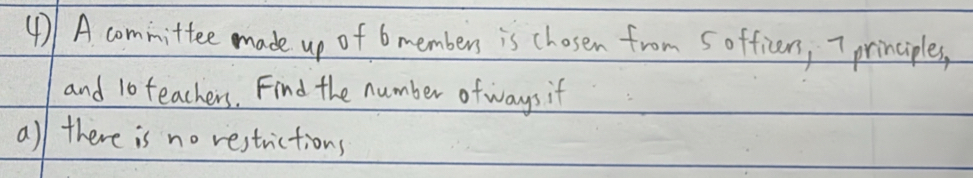 4) A committee made up of 6 members is chosen from 5 officers, 7 principles,
and 10 teachers. Find the number of ways if
a) there is no restrictions